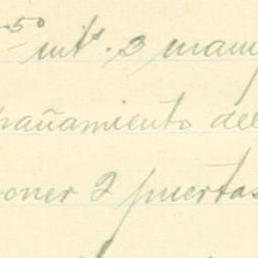 50 mts. 3 mam
pañamiento del
oner 2 puertas